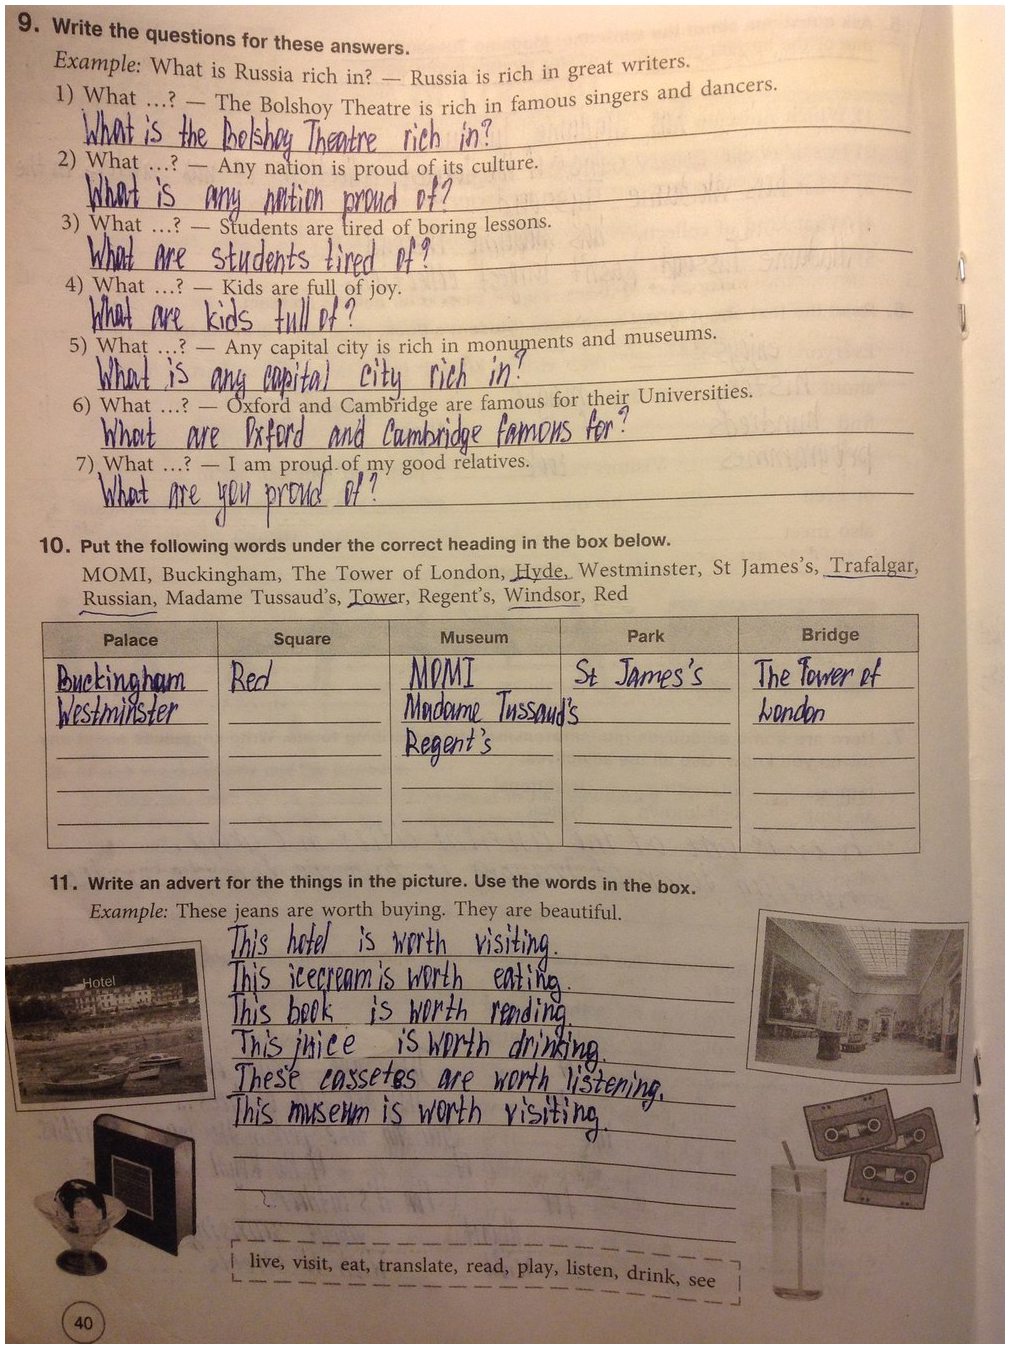 9. Write the questions for these answers.
Example: What is Russia rich in? — Russia is rich in great writers.
1) What ...? — The Bolshoy Theatre is rich in famous singers and dancers.
What is the Bolshoy Theatre rich in?
2) What ...? — Any nation is proud of its culture.
What is any nation proud of?
3) What ...? — Students are tired of boring lessons.
What are students tired of?
4) What ...? — Kids are full of joy.
What are kids full of?
5) What ...? — Any capital city is rich in monuments and museums.
What is any capital city rich in?
6) What ...? — Oxford and Cambridge are famous for their Universities.
What are Oxford and Cambridge famous for?
7) What ...? — I am proud of my good relatives.
What are you proud of?
10. Put the following words under the correct heading in the box below.
MOMI, Buckingham, The Tower of London, Hyde, Westminster, St James's, Trafalgar,
Russian, Madame Tussaud's, Tower, Regent's, Windsor, Red
Palace Square Museum Park Bridge
Buckingham Red MOMI St James's The Tower of
Westminster Madame Tussaud's London
Regent's
11. Write an advert for the things in the picture. Use the words in the box.
Example: These jeans are worth buying. They are beautiful.
This hotel is worth visiting.
This icecream is worth eating.
Hotel
This book is worth reading.
This juice is worth drinking.
These cassetes are worth listening.
This museum is worth visiting.
live, visit, eat, translate, read, play, listen, drink, see
40